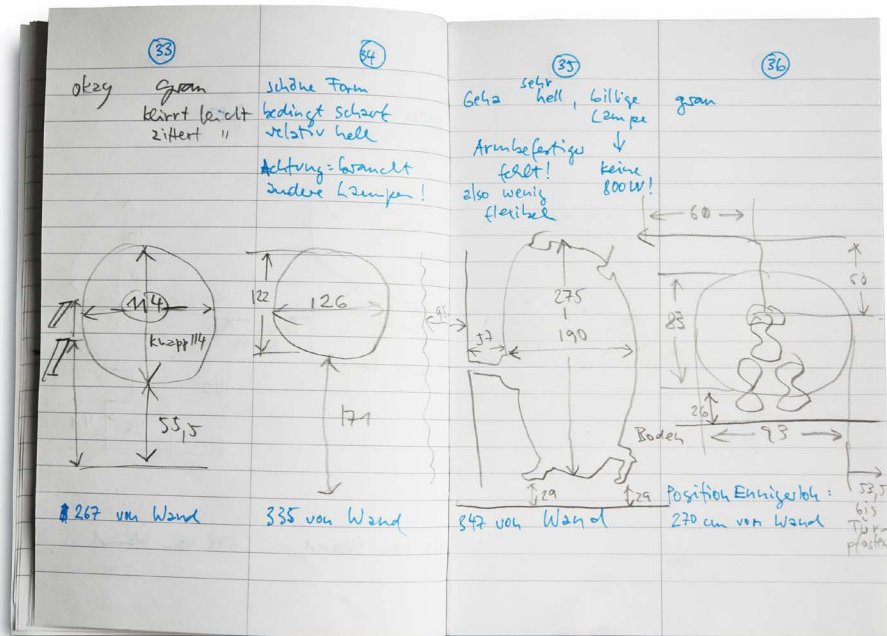 33
okay grau
klirrt leicht
zittert "
114
knapp 114
55,5
267 von Wand
34
schöne Form
bedingt scharf
relativ hell
Achtung = braucht
andere Lampen!
122
126
171
335 von Wand
35
sehr
Geha hell, billige
Lampe
Armbefestiger
fehlt! keine
also wenig 800W!
flexibel
275
37
190
29 29
347 von Wand
36
grau
60
60
83
26
Boden 93
Position Ennigerloh: 53,5
270 cm von Wand bis
Tür-
pfosten